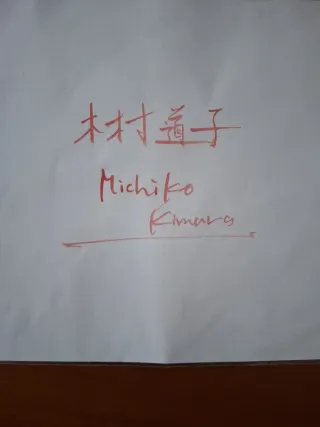 木村道子
Michiko
Kimura